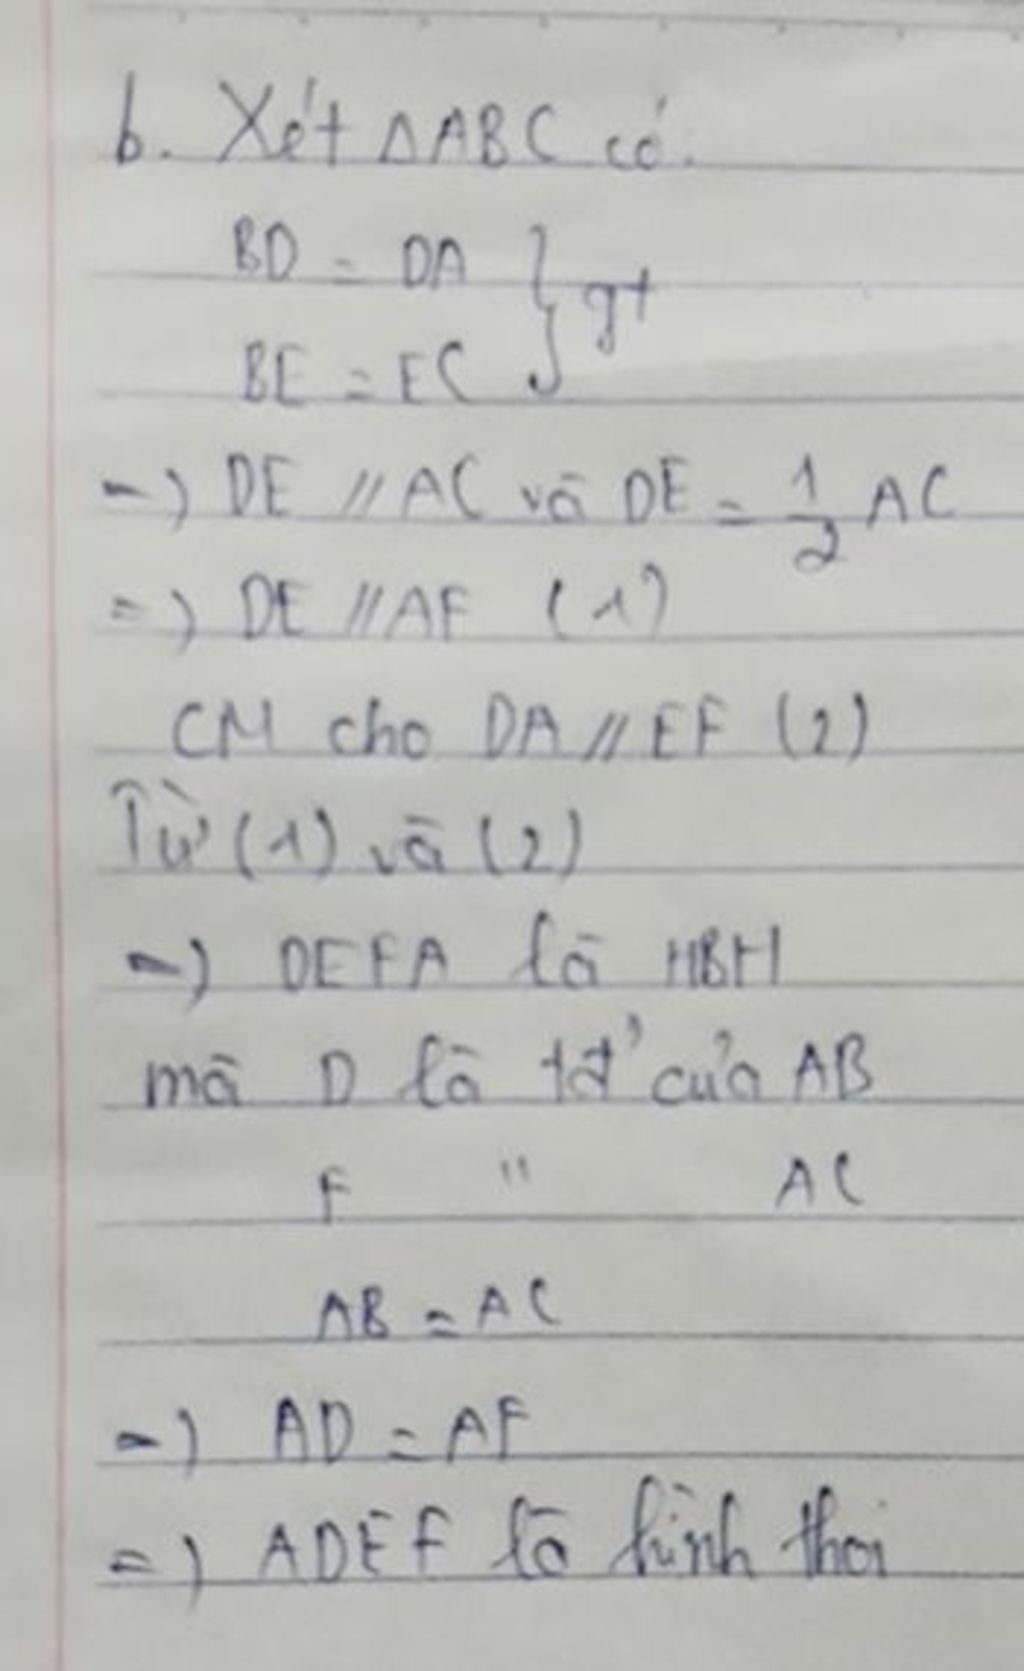 b. Xét ΔABC có:
BD = DA } gt
BE = EC
=> DE // AC và DE = 1/2 AC
=> DE // AF (1)
CM cho DA // EF (2)
Từ (1) và (2)
=> DEFA là HBH
mà D là tđ' của AB
F " AC
AB = AC
=> AD = AF
=> ADEF là hình thoi